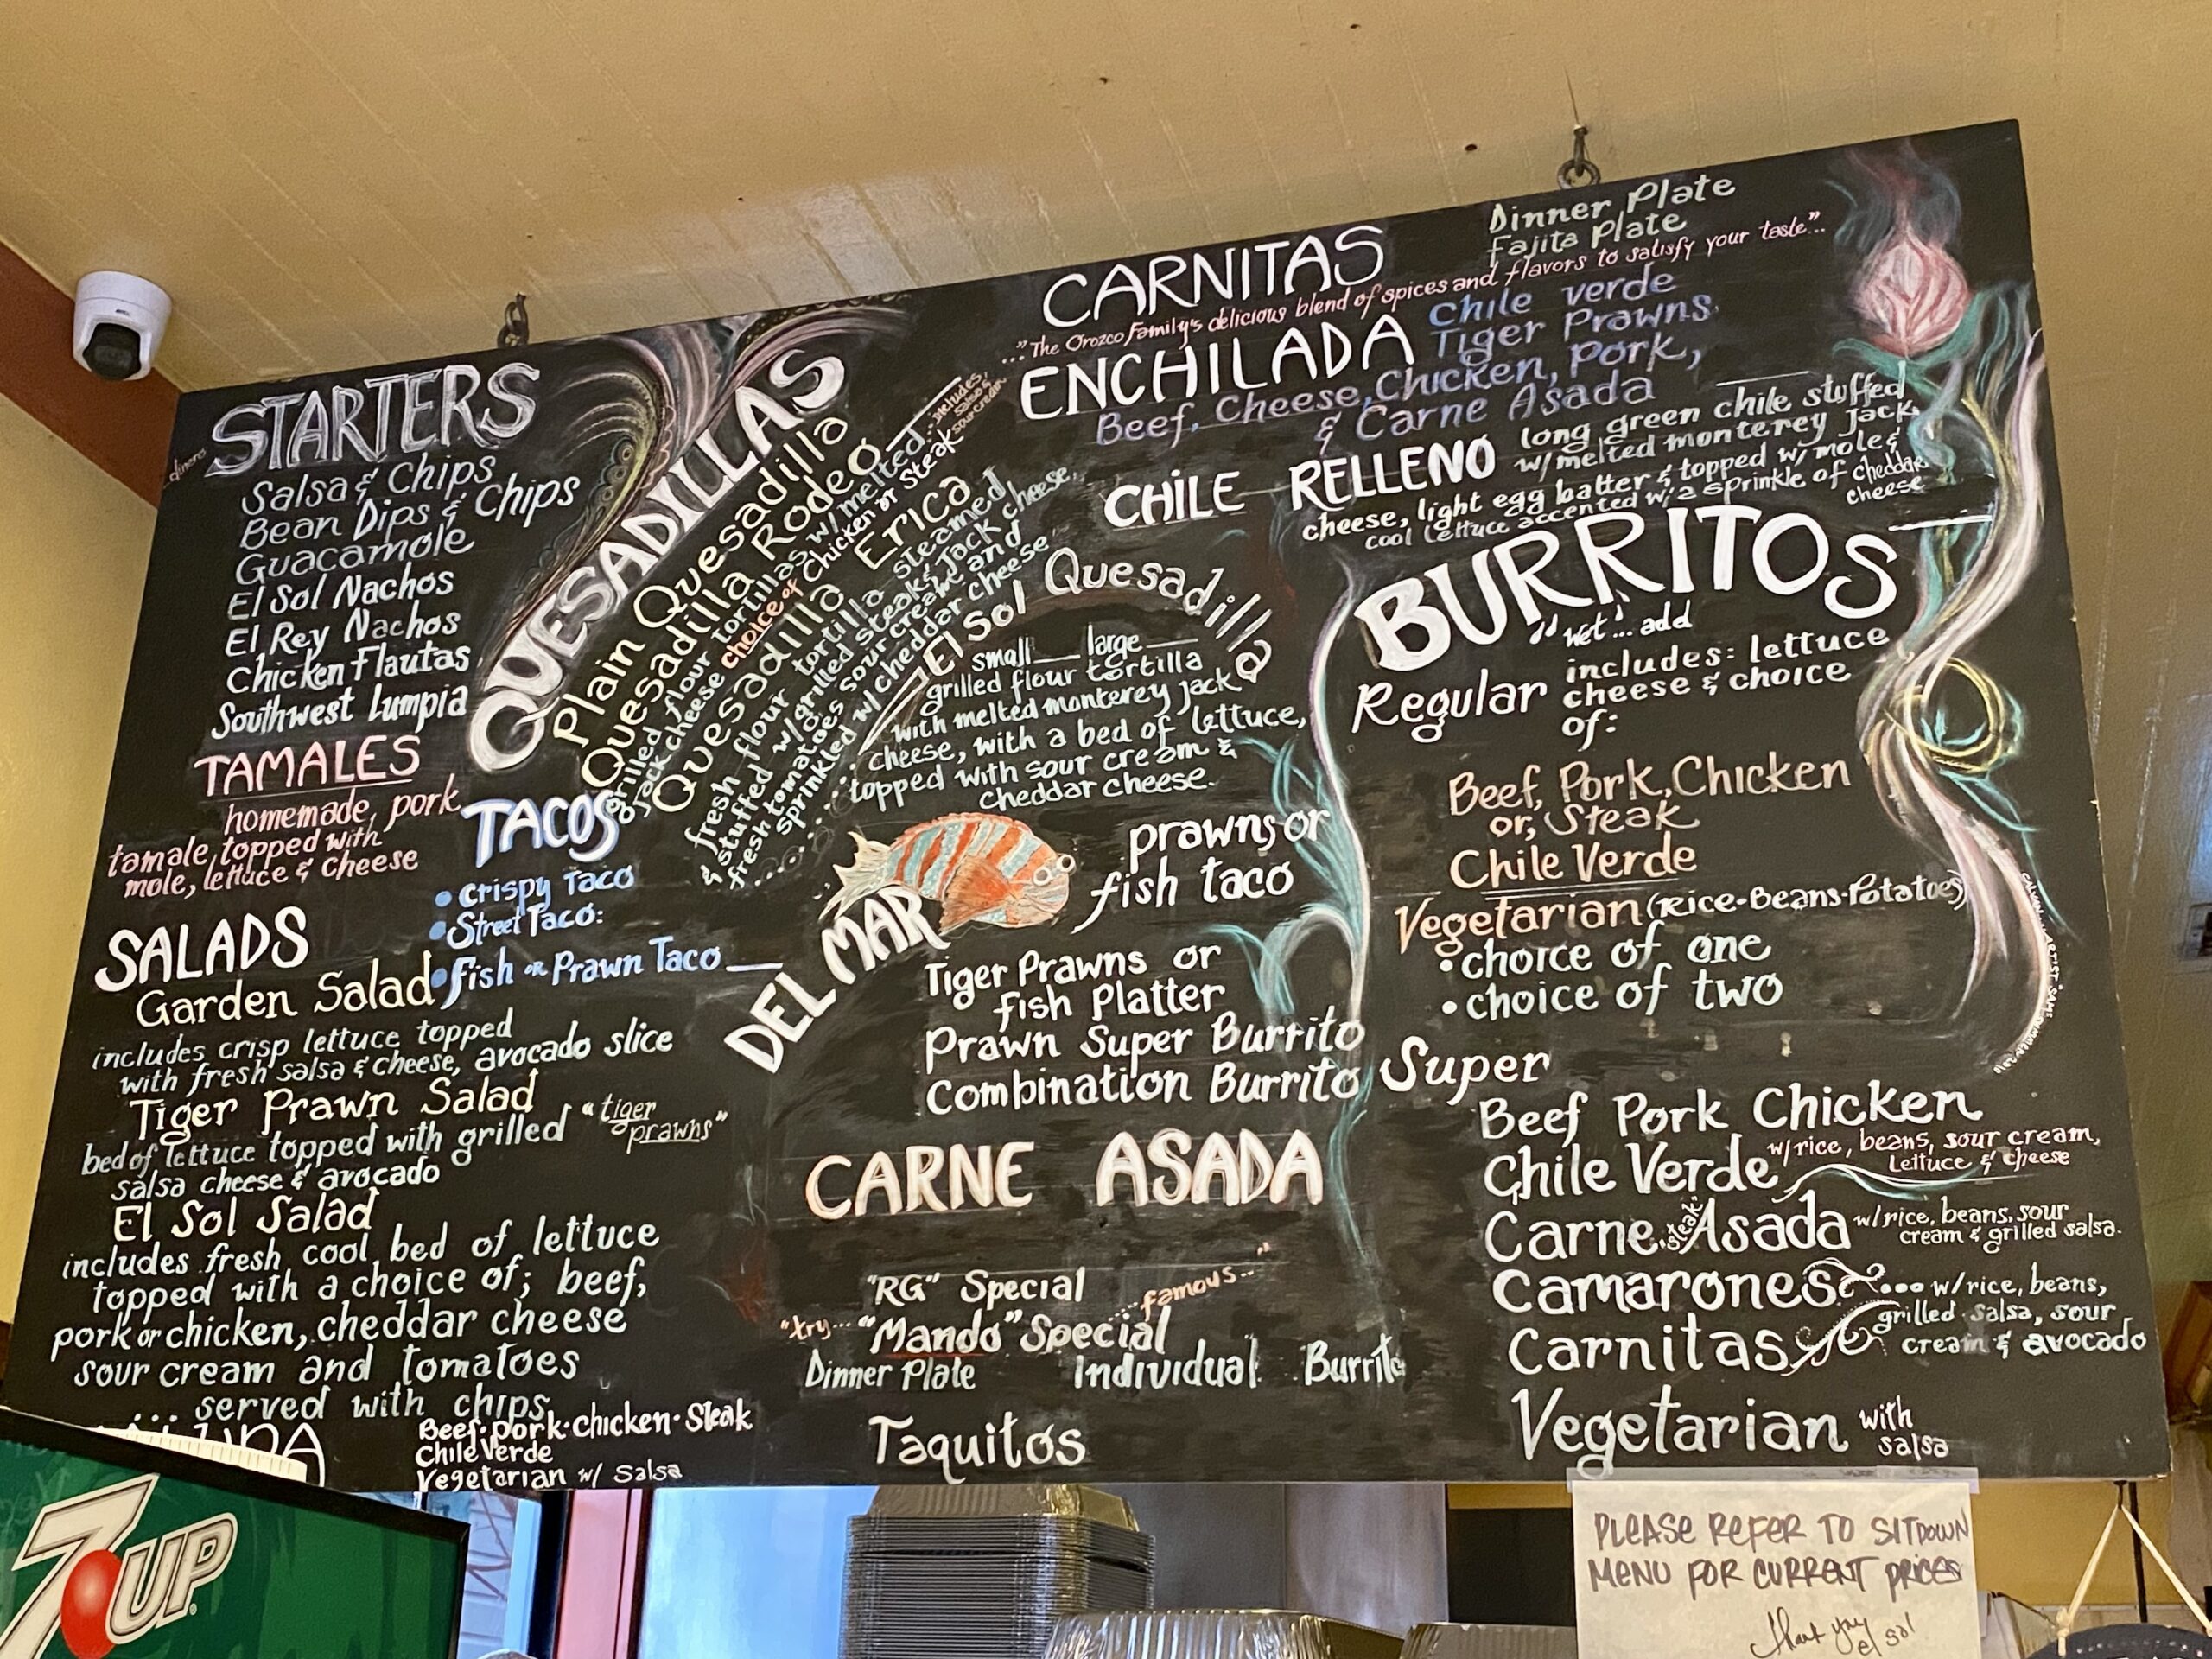 STARTERS
Salsa & Chips
Bean Dips & Chips
Guacamole
El Sol Nachos
El Rey Nachos
Chicken Flautas
Southwest Lumpia
TAMALES
homemade, pork
tamale, topped with
mole, lettuce & cheese
SALADS
Garden Salad
includes crisp lettuce topped
with fresh salsa & cheese, avocado slice
Tiger Prawn Salad
bed of lettuce topped with grilled "tiger
prawns"
salsa cheese & avocado
El Sol Salad
includes fresh cool bed of lettuce
topped with a choice of; beef,
pork or chicken, cheddar cheese
sour cream and tomatoes
... served with chips
Beef·Pork·chicken·Steak
Chile Verde
Vegetarian w/ salsa
TACOS
• crispy Taco
• Street Taco:
• fish or Prawn Taco
QUESADILLAS
Plain Quesadilla
Quesadilla Rodeo
grilled flour tortillas w/ melted
Jack cheese choice of Chicken or Steak
...includes,
salsa &
sour cream
Quesadilla Erica
fresh flour tortilla steamed
& stuffed w/grilled steak & Jack cheese,
fresh tomatoes sour cream and
sprinkled w/ cheddar cheese
El Sol Quesadilla
small large
grilled flour tortilla
with melted monterey jack
cheese, with a bed of lettuce,
topped with sour cream &
cheddar cheese.
DEL MAR
prawns or
fish taco
Tiger Prawns or
fish Platter
Prawn Super Burrito
Combination Burrito
CARNE ASADA
"RG" Special
"try... "Mando" Special ....famous..."
Dinner Plate Individual Burrito
Taquitos
CARNITAS
Dinner Plate
Fajita Plate
..."The Orozco Family's delicious blend of spices and flavors to satisfy your taste"...
ENCHILADA
Chile verde
Tiger Prawns,
Beef, Cheese, Chicken, Pork,
& Carne Asada
CHILE RELLENO
long green chile stuffed
w/melted monterey Jack
cheese, light egg batter & topped w/ mole &
cool lettuce accented w/ a sprinkle of cheddar
cheese
BURRITOS
"wet"... add
Regular
includes: lettuce
cheese & choice
of:
Beef, Pork, Chicken
or, Steak
Chile Verde
Vegetarian (Rice-Beans-Potatoes)
• choice of one
• choice of two
Super
Beef Pork Chicken
Chile Verde w/rice, beans, sour cream,
Lettuce & cheese
Carne Asada steak w/rice, beans, sour
cream & grilled salsa.
Camarones ... w/rice, beans,
grilled salsa, sour
Carnitas cream & avocado
Vegetarian with
salsa
7UP
PLEASE REFER TO SITDOWN
MENU FOR CURRENT PRICES
thank you
el sol